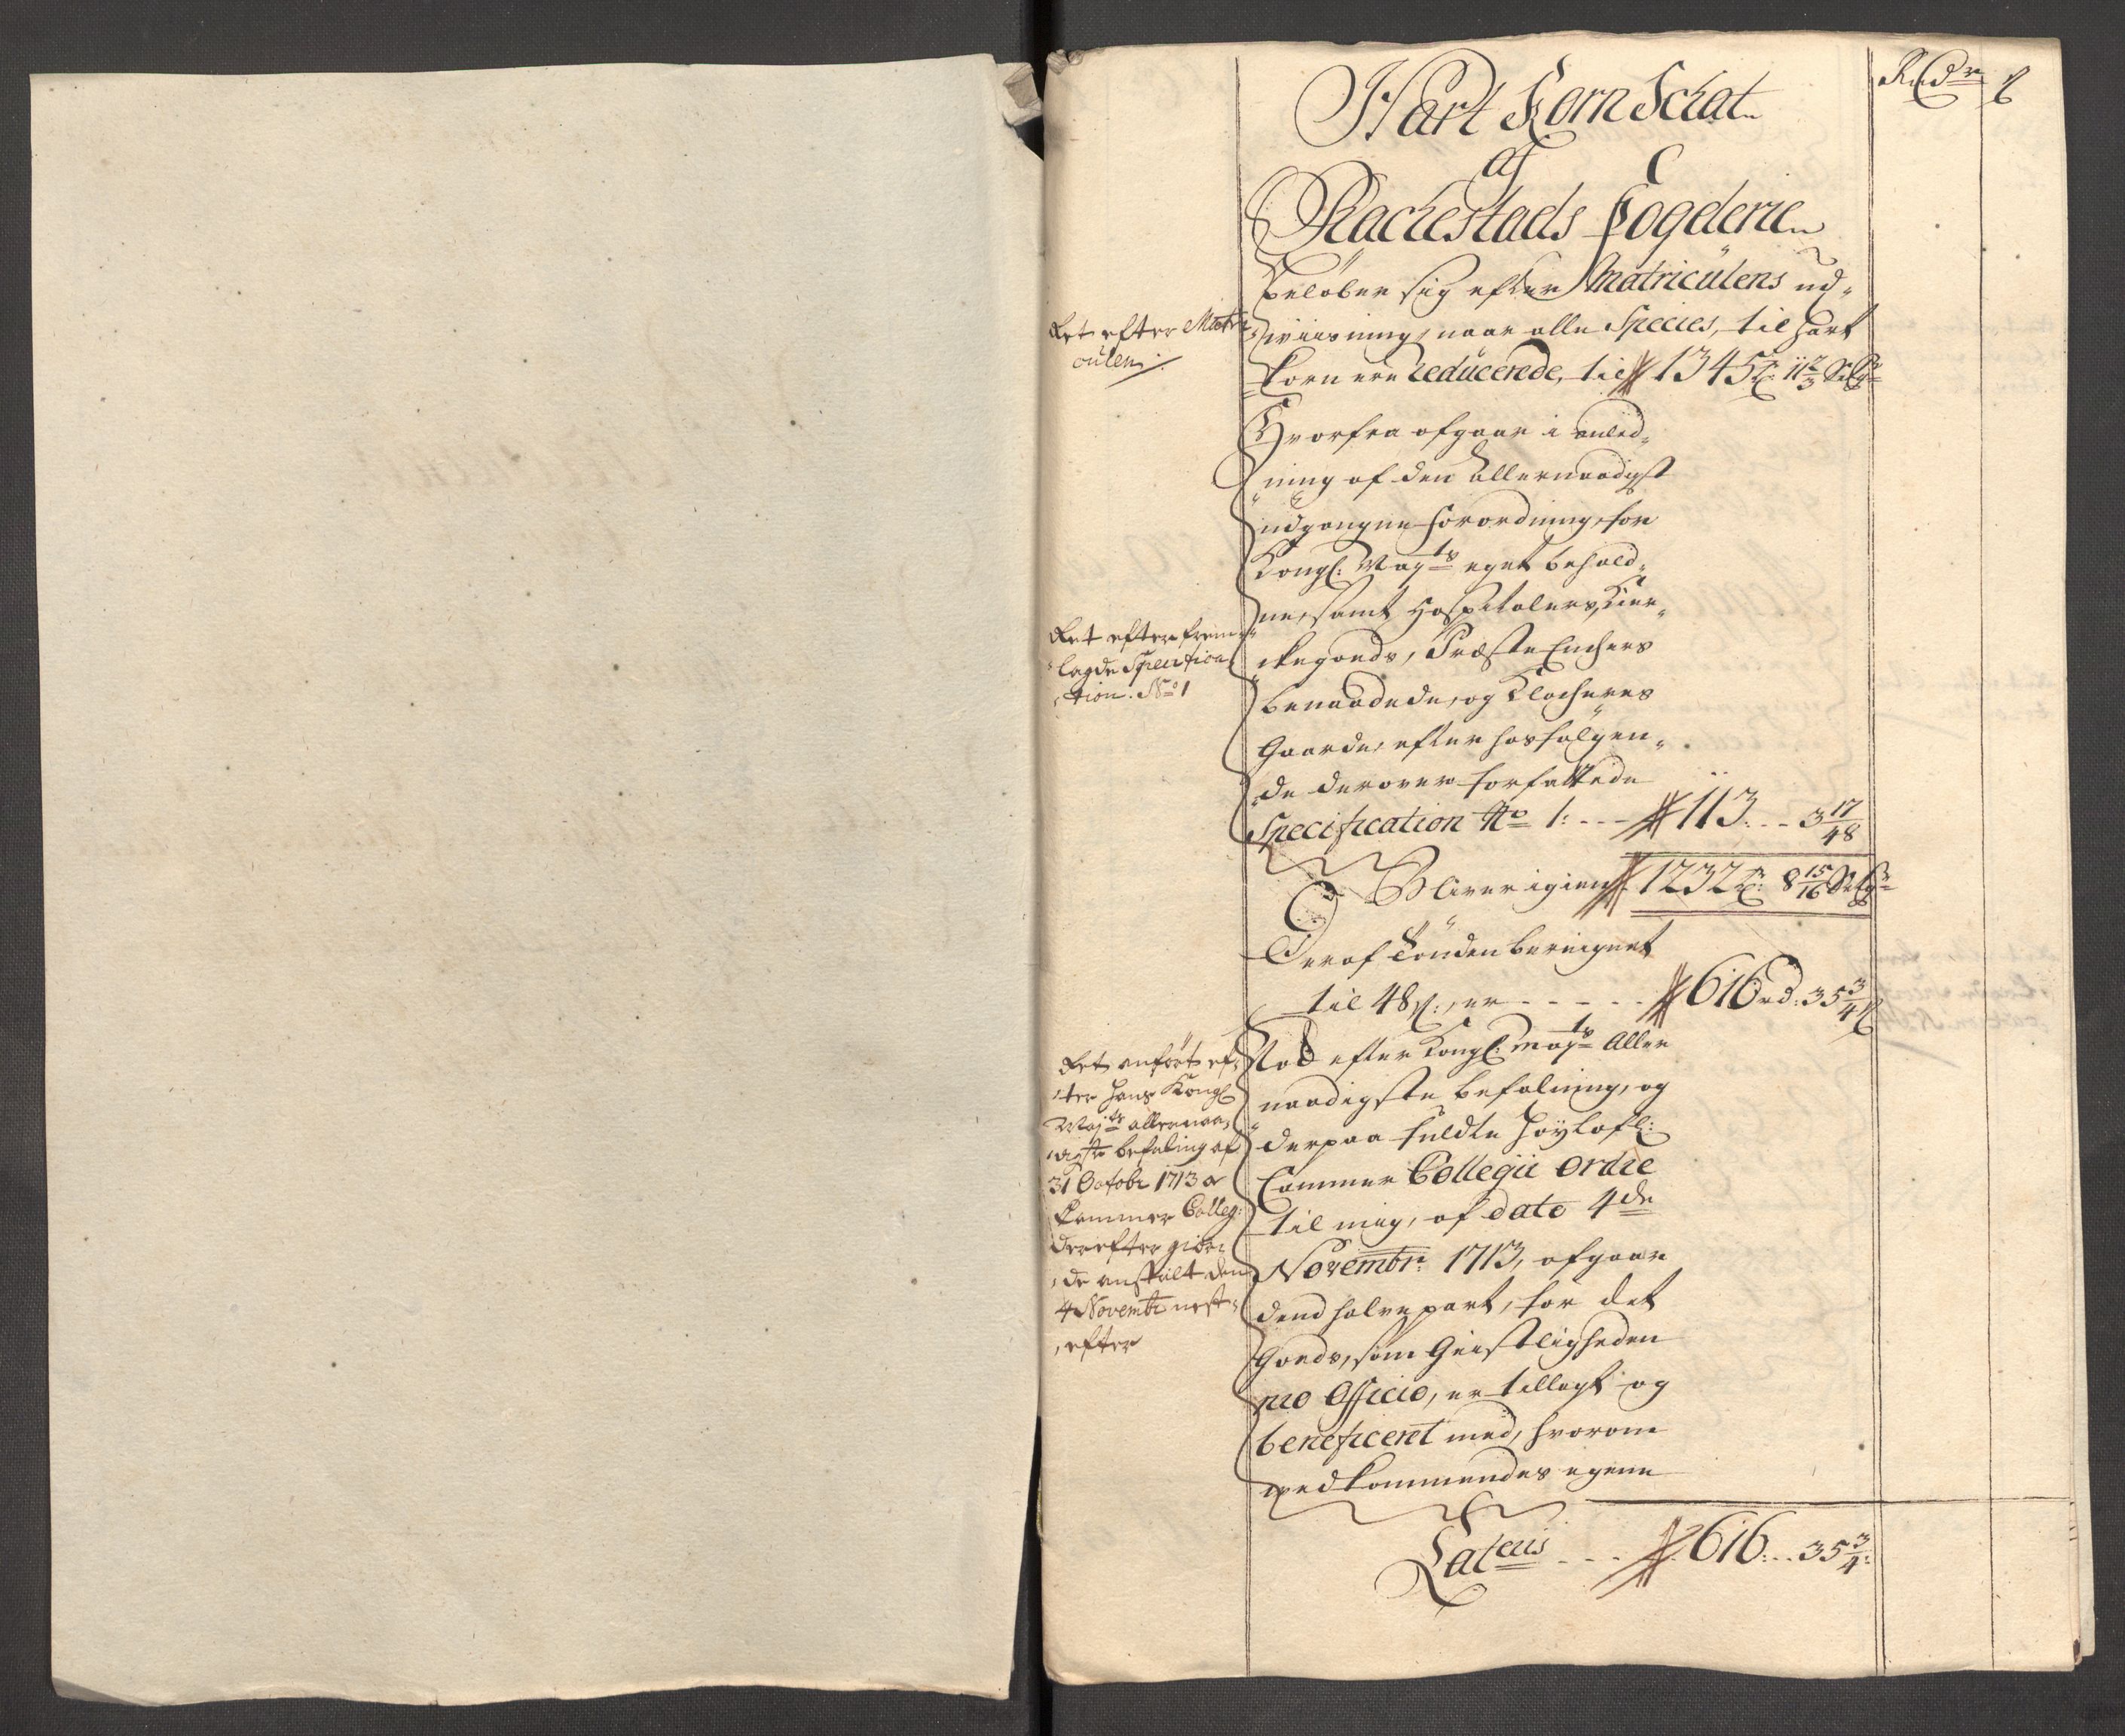 Rixdr ß
Hart Korn Schat
af
Rachestads Fogderie
beløber sig efter Matriculens ud„
„wiisning, naar alle Species, til hart
korn ere reducerede, til 1345 Tr: 11 2/3 S
Hvorfra afgaar i anled„
„ning af den allernaadigst
udgangne forordning, for
Kongl: Mayts eget behold„
„ne, samt Hospitalers, Kier„
„chegoeds, Præste Enchers
benaadede, og Klocheres
Gaarde, efter hosfølgen„
„de derover forfattede
Specification No 1: - - - 113. - - 3 17/48
Bliver igien 1232 Tr: 8 15/16 S
Deraf Tønden beregnet
til 48 ß:, er - - - - - 616 rd: 35 3/4 ß
Nok efter Kongl: Mayts Aller
naadigste befaling, og
derpaa fuldte Høylofl:
Cammer Collegii Ordre
til mig, af dato 4de
Novembr: 1713, afgaar
dend halve part, for det
Goeds, som Geistligheden
pro Officio, er tillagt og
beneficeret med, hvorom
vedkommendes egene
Lateris - - - 616: - - 35 3/4:
Ret efter Matri„
culen
Ret efter frem„
„lagde Specifica„
„tion. No 1
Ret anført ef„
„ter hans Kongl
Majts allernaa„
„digste befaling af
31 Octobr 1713 &
Kammer Colleg:
derefter gior„
„de anstalt den
4 Novembr nest„
„efter